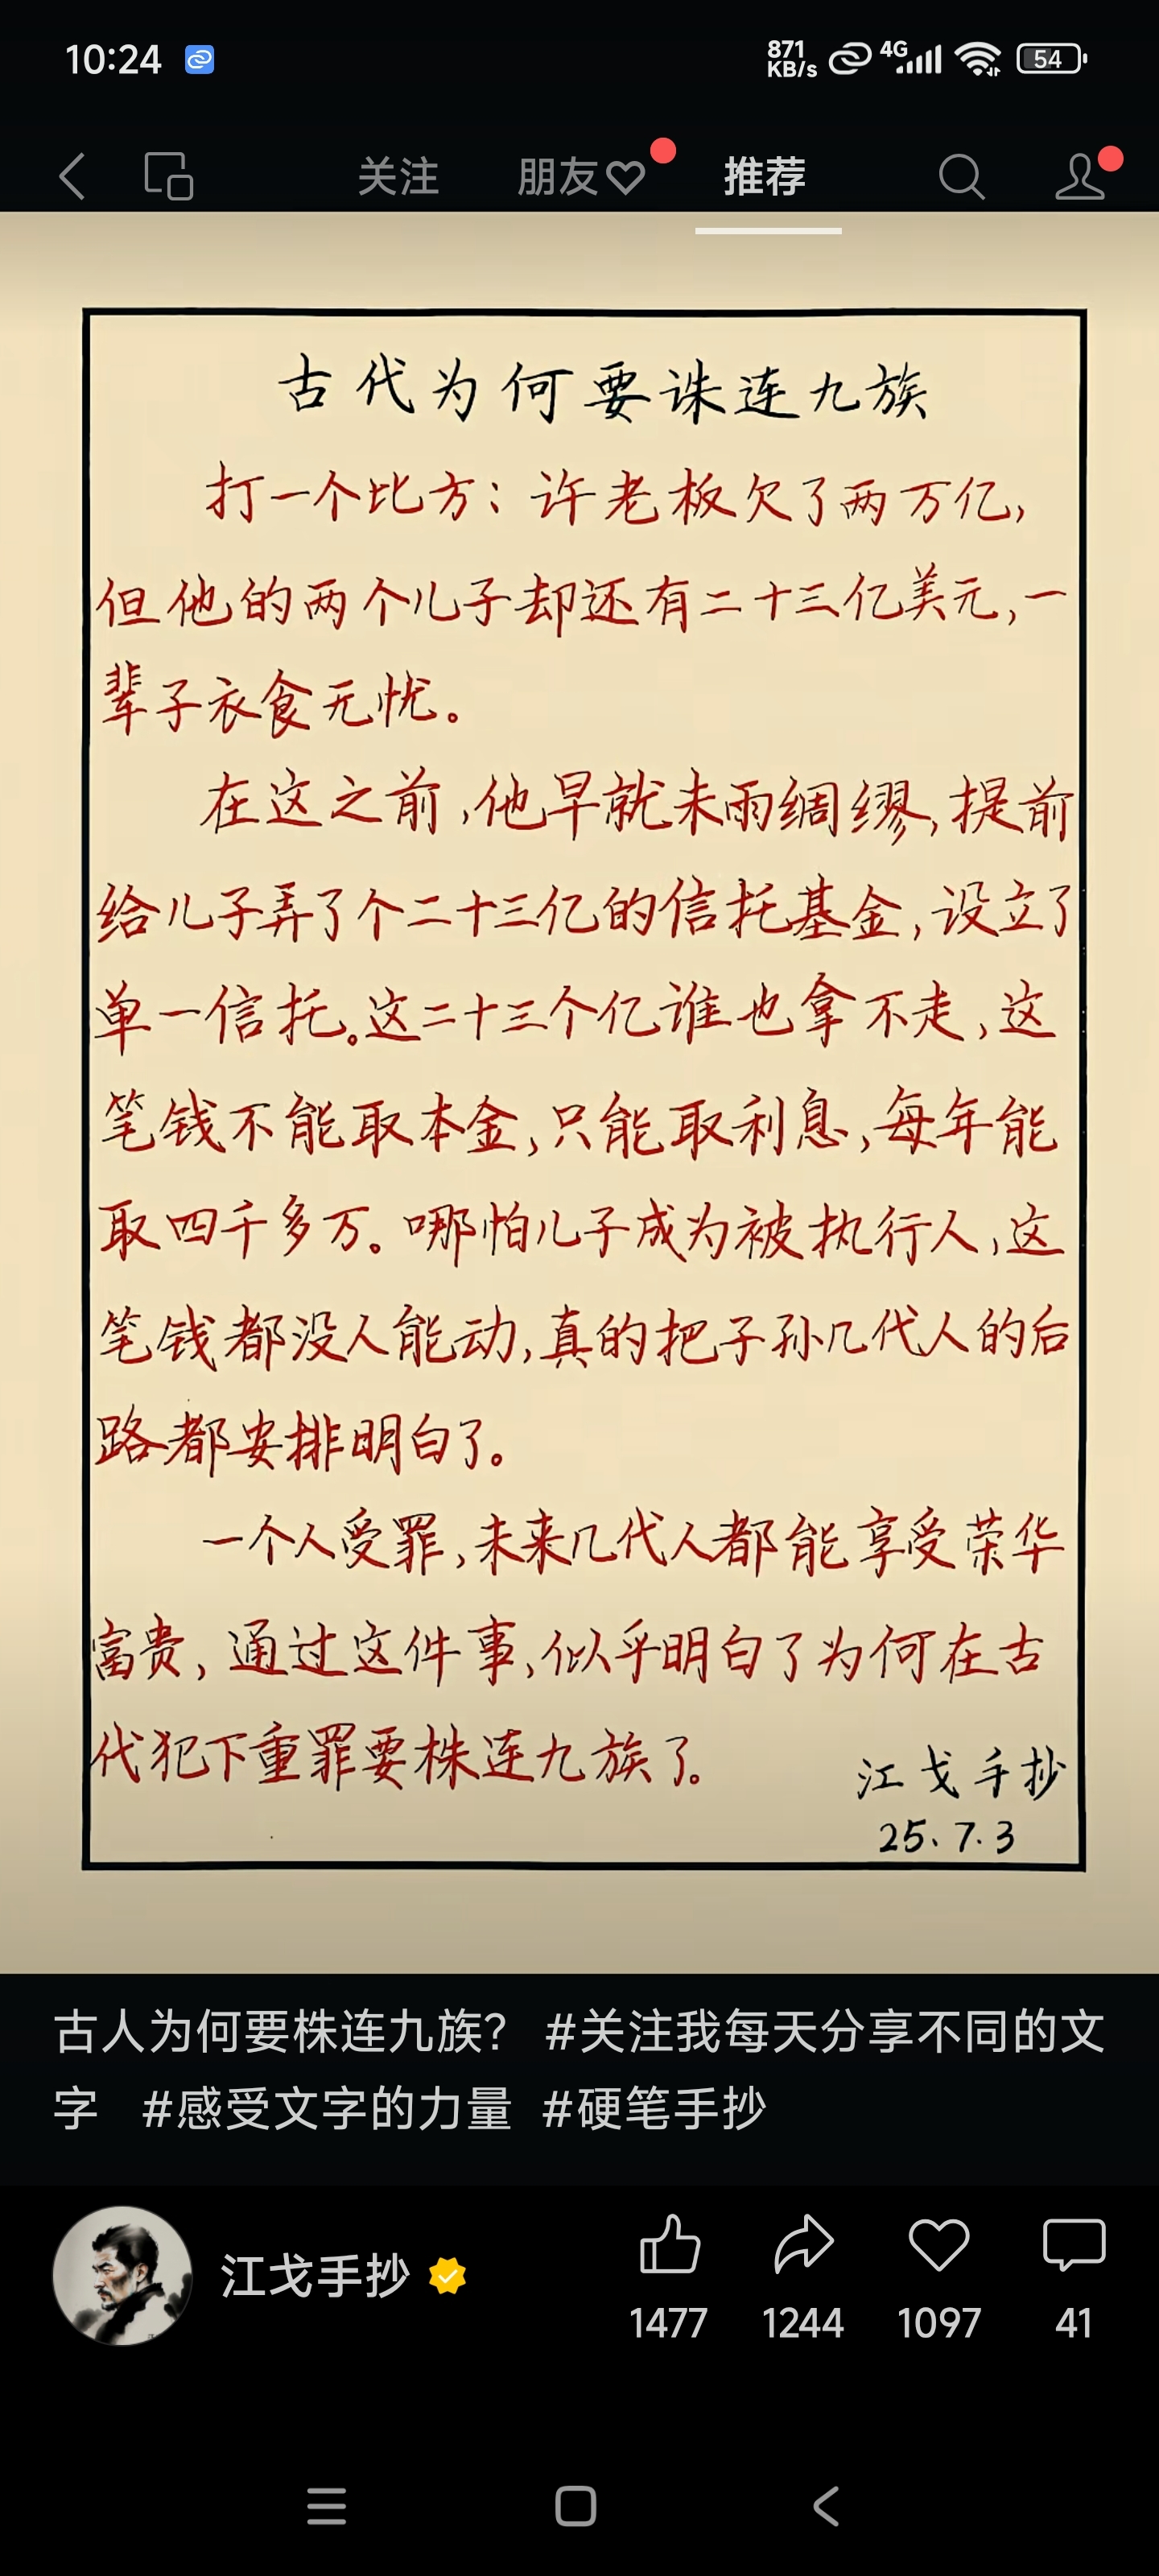 10:24
871 KB/s 4G 54
关注 朋友 推荐
古代为何要诛连九族
打一个比方：许老板欠了两万亿，
但他的两个儿子却还有二十三亿美元，一
辈子衣食无忧。
在这之前，他早就未雨绸缪，提前
给儿子弄了个二十三亿的信托基金，设立了
单一信托。这二十三个亿谁也拿不走，这
笔钱不能取本金，只能取利息，每年能
取四千多万。哪怕儿子成为被执行人，这
笔钱都没人能动，真的把子孙几代人的后
路都安排明白了。
一个人受罪，未来几代人都能享受荣华
富贵，通过这件事，似乎明白了为何在古
代犯下重罪要株连九族了。
江戈手抄
25.7.3
古人为何要株连九族？ #关注我每天分享不同的文
字 #感受文字的力量 #硬笔手抄
江戈手抄
1477 1244 1097 41